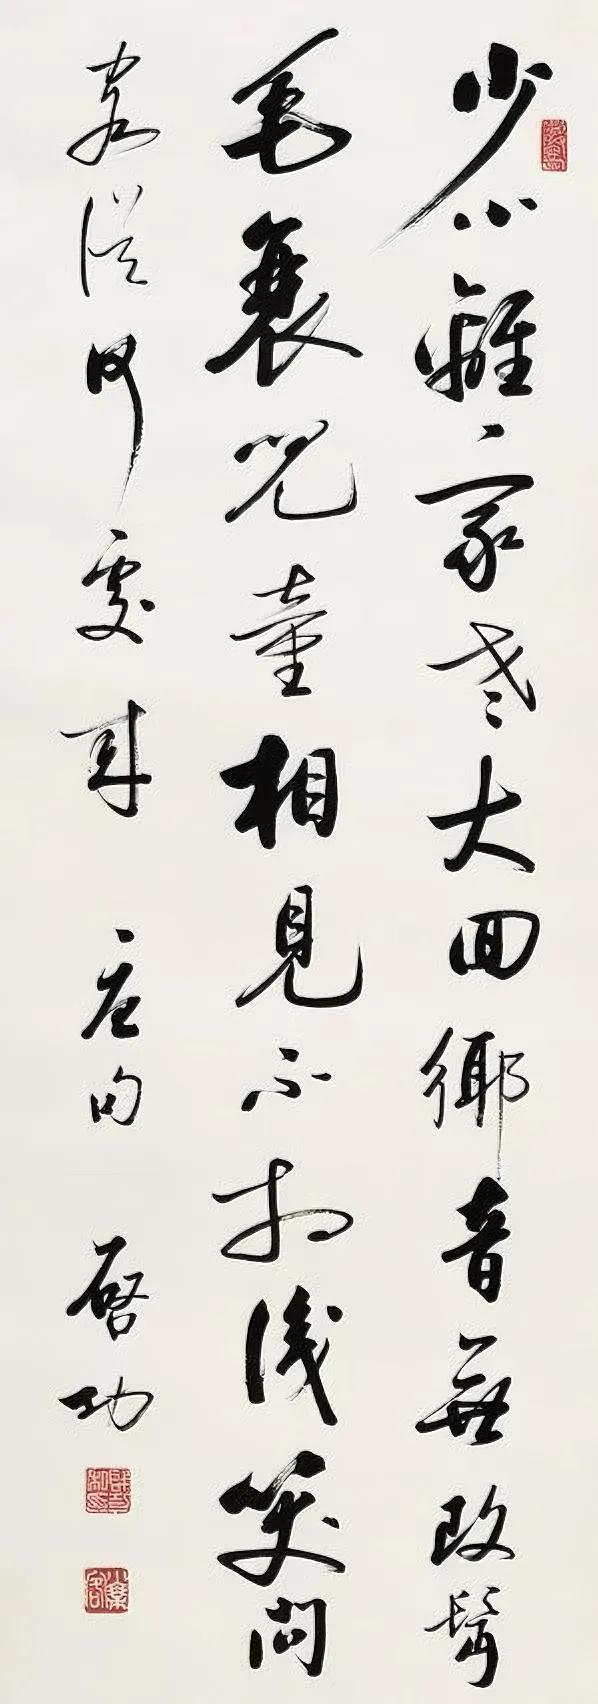 少小離家老大回鄉音無改鬢
毛衰兒童相見不相識笑問
客從何處來 唐句 啓功